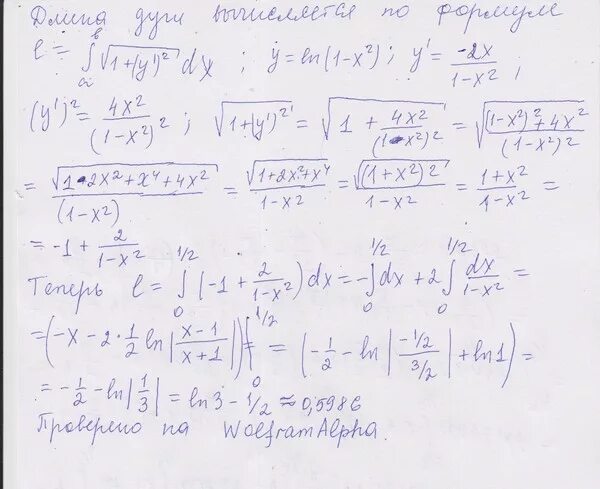 Длина дуги вычисляется по формуле
l = ∫ₐᵇ √(1+(y')²) dx ; y = ln(1-x²) ; y' = -2x/(1-x²) ;
(y')² = 4x²/(1-x²)² ; √(1+(y')²) = √(1 + 4x²/(1-x²)²) = √(((1-x²)²+4x²)/(1-x²)²)
= √(1-2x²+x⁴+4x²)/(1-x²) = √(1+2x²+x⁴)/(1-x²) = √((1+x²)²)/(1-x²) = (1+x²)/(1-x²) =
= -1 + 2/(1-x²)
Теперь l = ∫₀^(1/2) (-1 + 2/(1-x²)) dx = -∫₀^(1/2) dx + 2∫₀^(1/2) dx/(1-x²) =
= (-x - 2·1/2 ln|(x-1)/(x+1)|)|₀^(1/2) = (-1/2 - ln|(-1/2)/(3/2)| + ln1) =
= -1/2 - ln|1/3| = ln3 - 1/2 ≈ 0,5986
Проверено на WolframAlpha.